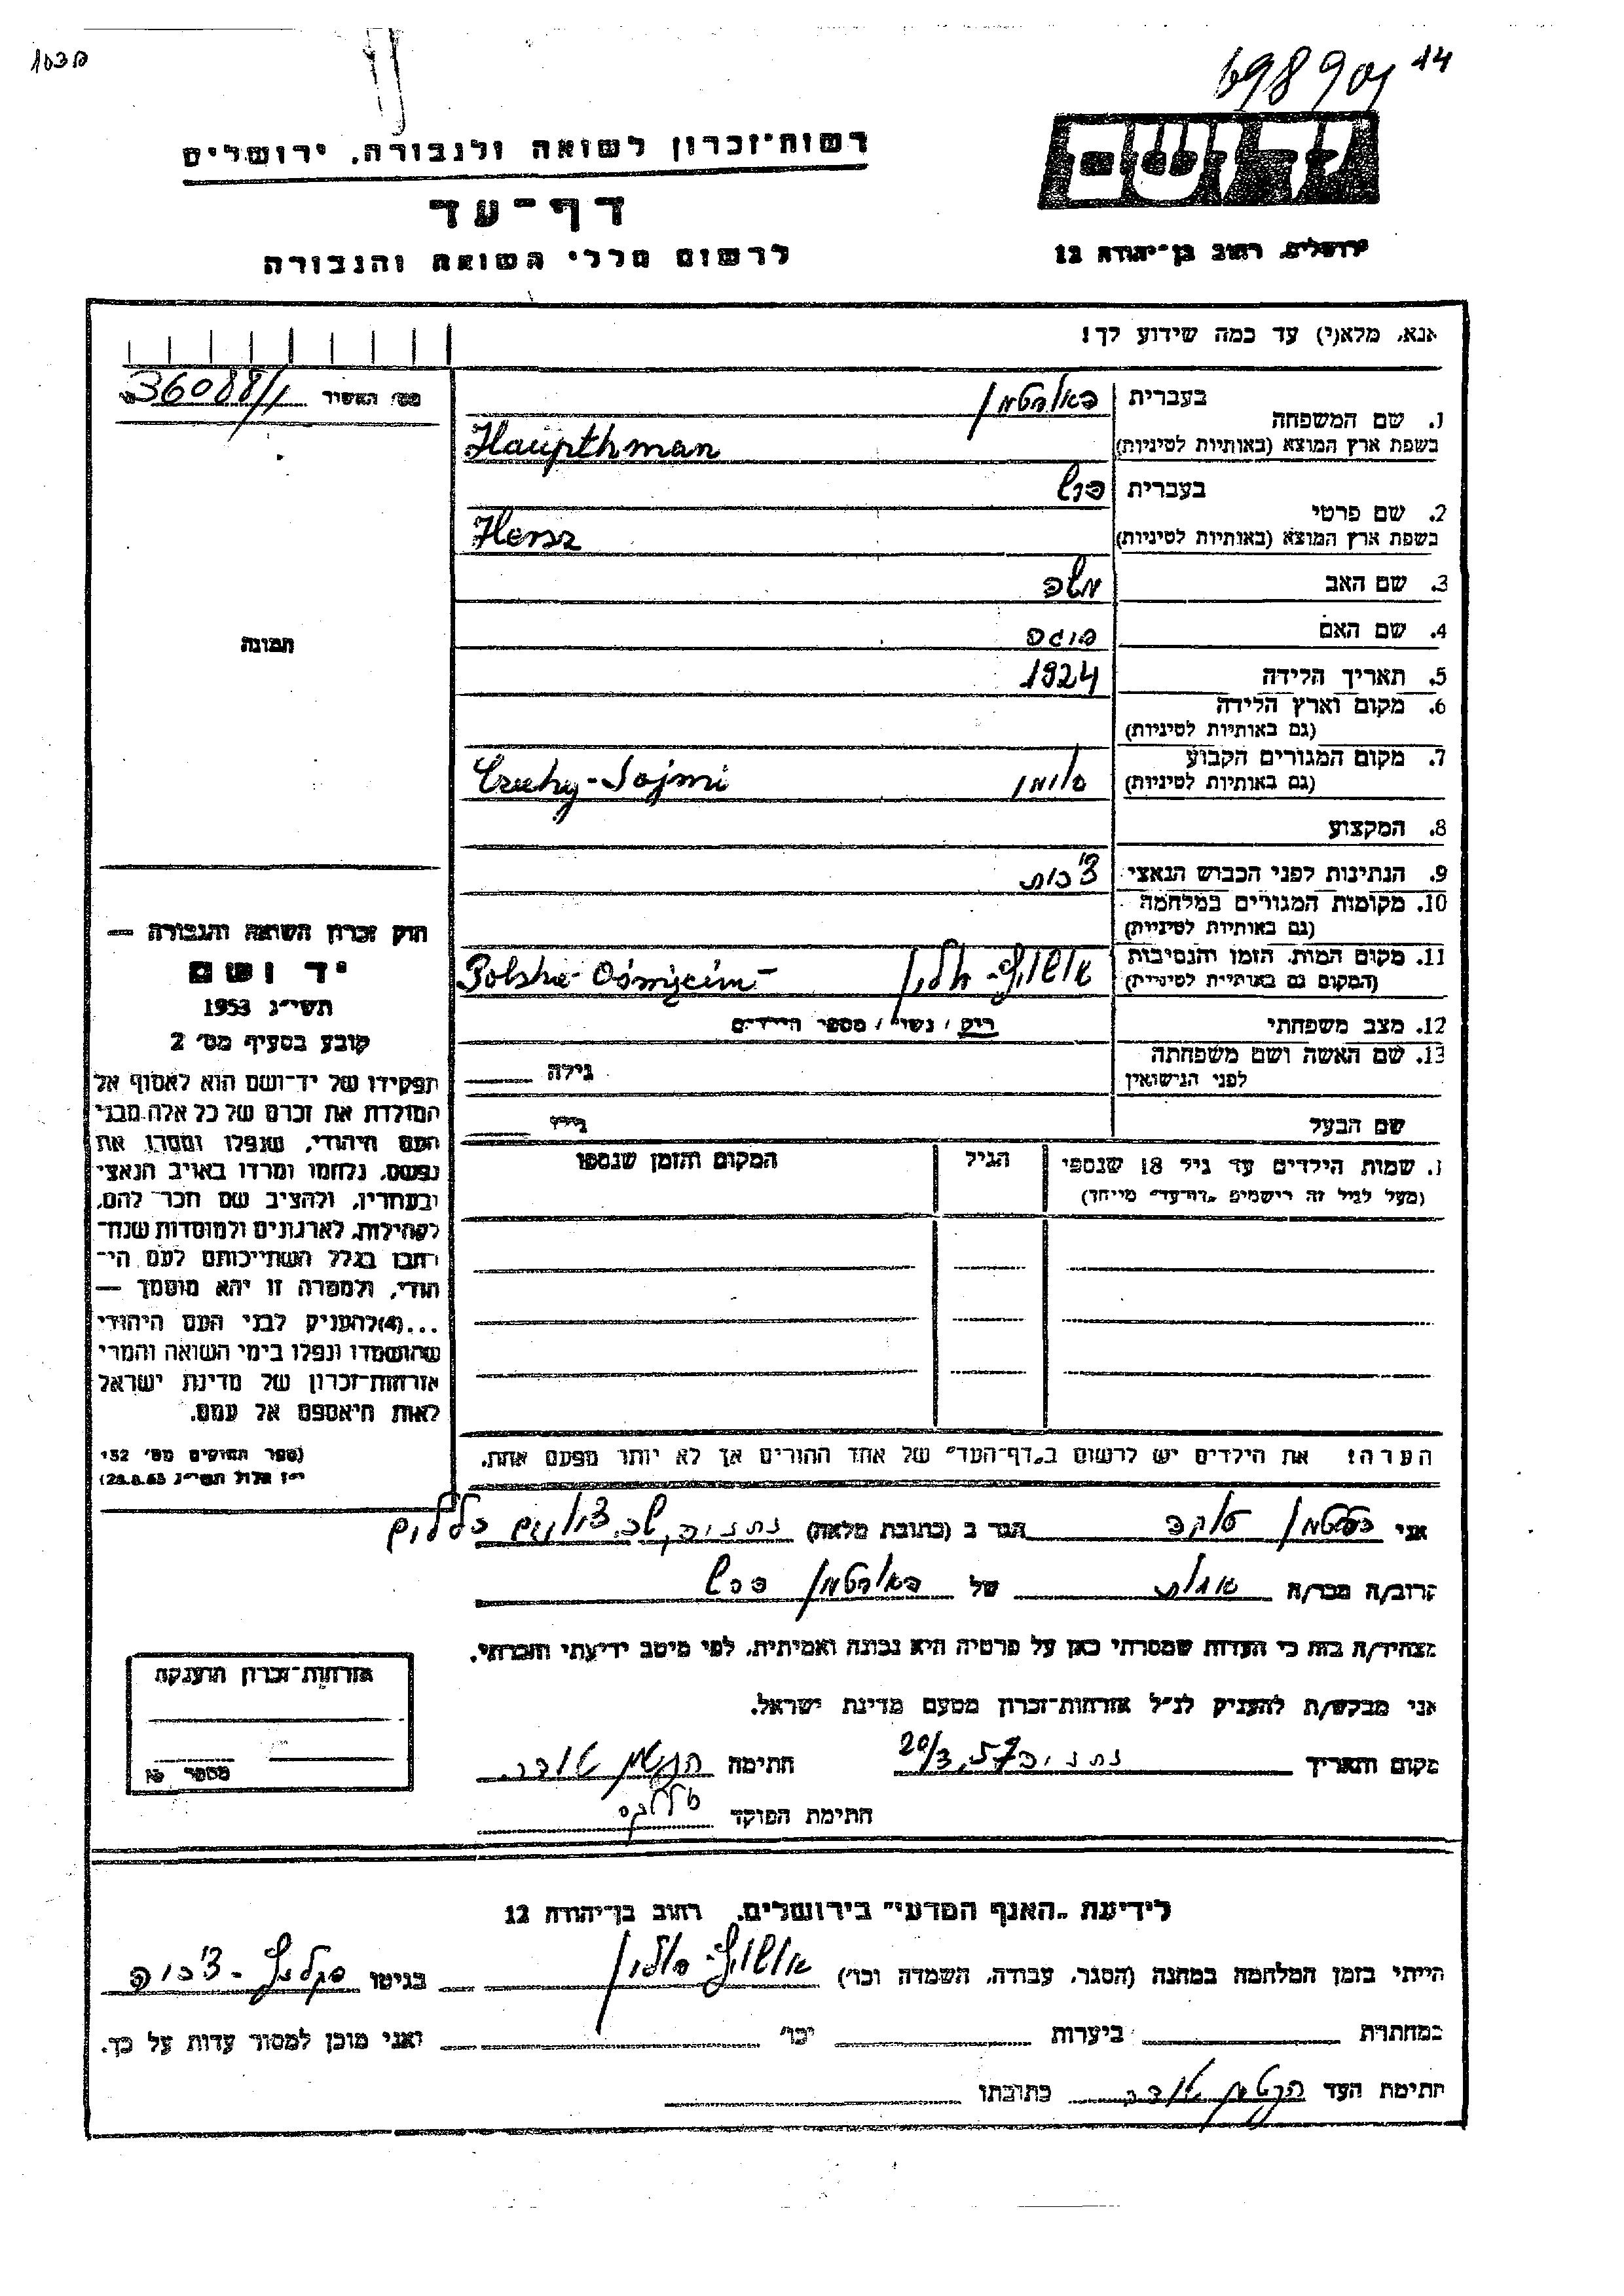 698901 14
רשות־זכרון לשואה ולגבורה, ירושלים
דף־עד
לרשום חללי השואה והגבורה
יד ושם
ירושלים, רחוב בן־יהודה 12
אנא, מלא(י) עד כמה שידוע לך!
מס׳ האשיר 36088/1
1. שם המשפחה
בעברית האופטמן
בשפת ארץ המוצא (באותיות לטיניות) Haupthman
2. שם פרטי
בעברית הרש
בשפת ארץ המוצא (באותיות לטיניות) Hersz
3. שם האב משה
4. שם האם
5. תאריך הלידה 1924
6. מקום וארץ הלידה
(גם באותיות לטיניות)
7. מקום המגורים הקבוע
(גם באותיות לטיניות)
8. המקצוע
9. הנתינות לפני הכבוש הנאצי
10. מקומות המגורים במלחמה
(גם באותיות לטיניות)
11. מקום המות, הזמן והנסיבות
(המקום גם באותיות לטיניות) אושויץ־פולין
12. מצב משפחתי רוק / נשוי / מספר הילדים
13. שם האשה ושם משפחתה
לפני הנישואין
גילה
שם הבעל
גילו
תמונה
חוק זכרון השואה והגבורה —
יד ושם
תשי״ג 1953
קובע בסעיף מס׳ 2
תפקידו של יד־ושם הוא לאסוף אל
המולדת את זכרם של כל אלה מבני
העם היהודי, שנפלו ומסרו את
נפשם, נלחמו ומרדו באויב הנאצי
ובעוזריו, ולהציב שם וזכר להם,
לקהילות, לארגונים ולמוסדות שנח־
רבו בגלל השתייכותם לעם הי־
הודי, ולמטרה זו יהא מוסמך —
...(4) להעניק לבני העם היהודי
שהושמדו ונפלו בימי השואה והמרי
אזרחות־זכרון של מדינת ישראל
לאות היאספם אל עמם.
(ספר החוקים מס׳ 132
י״ז אלול תשי״ג 28.8.53)
1. שמות הילדים עד גיל 18 שנספו
(מעל לגיל זה רישמים „דף־עד״ מייחד)
הגיל
המקום והזמן שנספו
הערה! את הילדים יש לרשום ב„דף־העד״ של אחד ההורים אך לא יותר מפעם אחת.
אני הגר ב (כתובת מלאה)
קרוב/ה מכר/ה אחות של האופטמן הרש
מצהיר/ה בזה כי העדות שמסרתי כאן על פרטיה היא נכונה ואמיתית, לפי מיטב ידיעתי והכרתי.
אני מבקש/ת להעניק לנ״ל אזרחות־זכרון מטעם מדינת ישראל.
מקום ותאריך נתניה, 20/3 57 חתימה
חתימת הפוקד
אזרחות־זכרון הוענקה
מספר
לידיעת „האגף המדעי״ בירושלים, רחוב בן־יהודה 12
הייתי בזמן המלחמה במחנה (הסגר, עבודה, השמדה וכו׳) אושויץ־פולין בגיטו
במחתרת ביערות וכו׳ ואני מוכן למסור עדות על כך.
חתימת העד כתובתו